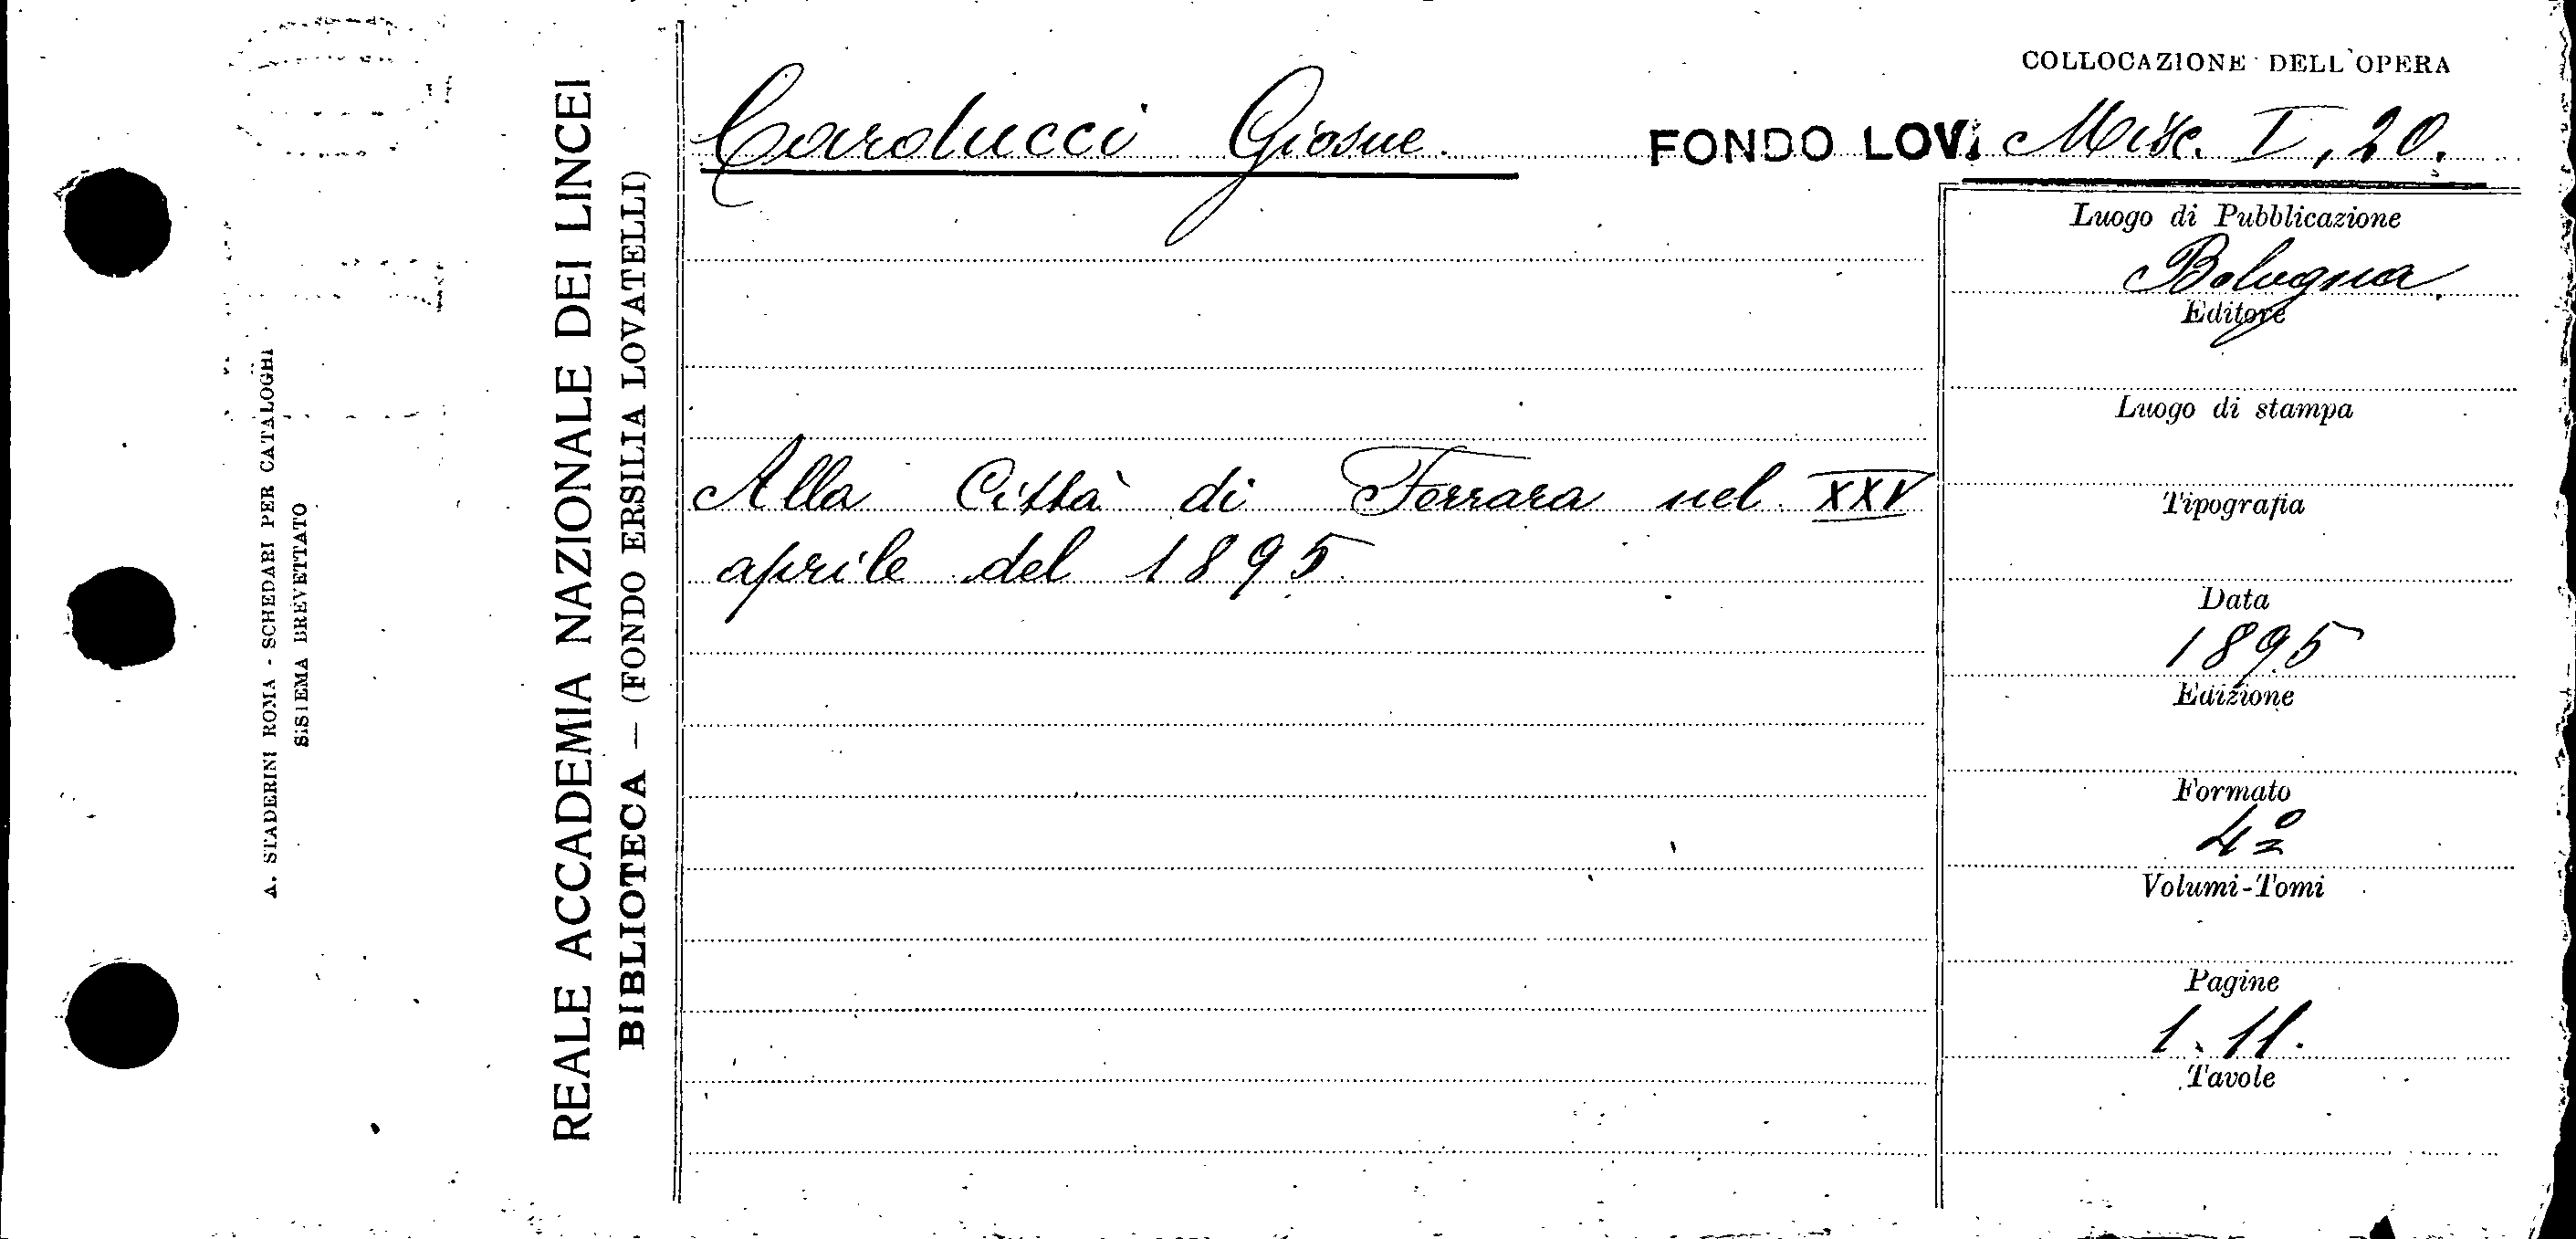 A. STADERINI ROMA - SCHEDARI PER CATALOGHI
SISTEMA BREVETTATO
REALE ACCADEMIA NAZIONALE DEI LINCEI
BIBLIOTECA — (FONDO ERSILIA LOVATELLI)
COLLOCAZIONE DELL'OPERA
Carducci Giosue.
FONDO LOV. Misc. I, 20.
Alla Città di Ferrara nel XXV
aprile del 1895
Luogo di Pubblicazione
Bologna
Editore
Luogo di stampa
Tipografia
Data
1895
Edizione
Formato
4º
Volumi-Tomi
Pagine
1. 11.
Tavole